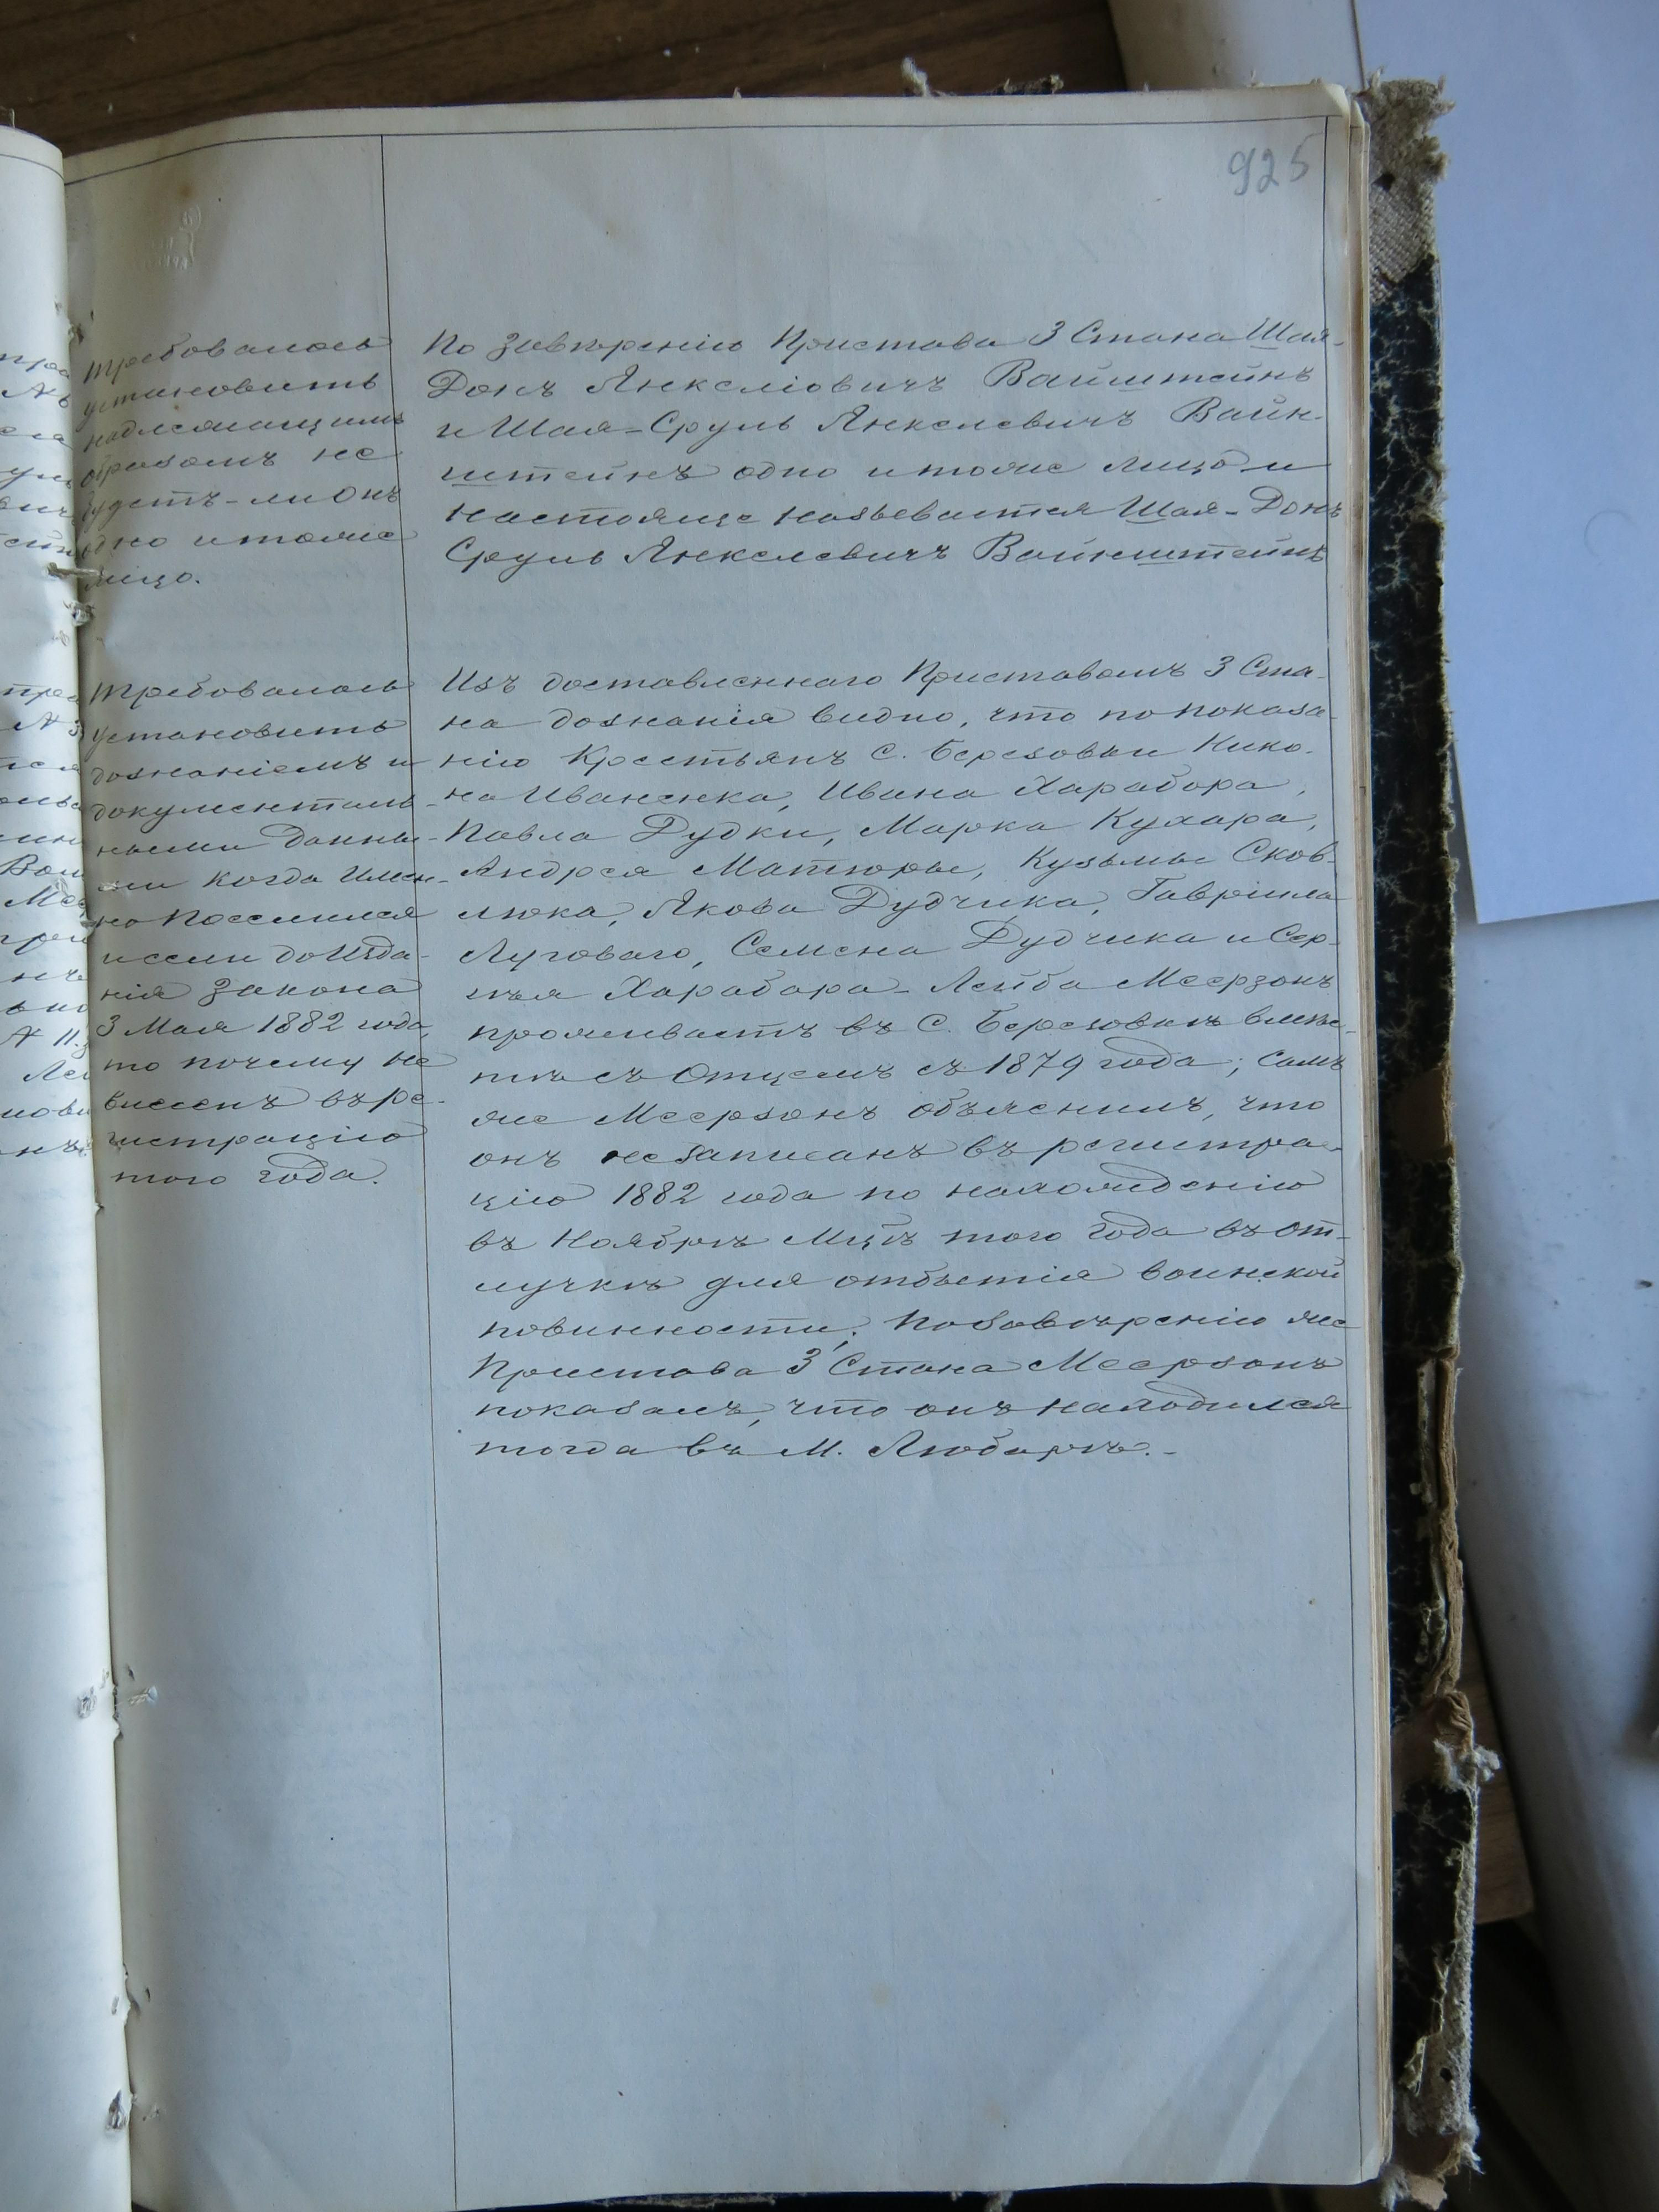 925
Требовалось
установить
надлежащимъ
образомъ не
будетъ-ли онъ
одно и тоже
лицо.
По завѣренію Пристава 3 Стана Шая-
Донъ Янкеліовичъ Вайштейнъ
и Шая-Сруль Янкелевичъ Вайн-
штейнъ одно и тоже лицо и
настояще называется Шая-Донъ
Сруль Янкелевичъ Вайнштейнъ
Требовалось
установить
дознаніемъ и
документаль-
ными данны-
ми когда имен-
но поселился
и если до изда-
нія закона
3 Мая 1882 года,
то почему не
внесенъ въ ре-
гистрацію
того года.
Изъ доставленнаго Приставомъ 3 Ста-
на дознанія видно, что по показа-
нію Крестьянъ с. Березовки Нико-
на Иваненка, Ивана Харабора,
Павла Дудки, Марка Кухара,
Андрея Матюры, Кузьмы Сков-
люка, Якова Дудчика, Гавріила
Луговаго, Семена Дудчика и Сер-
гѣя Харабара - Лейба Меерзонъ
проживаетъ въ С. Березовкѣ вмѣс-
тѣ съ Отцемъ съ 1879 года; Самъ
же Меерзонъ объяснилъ, что
онъ не записанъ въ регистра-
цію 1882 года по нахожденію
въ Ноябрѣ Мцѣ того года въ от-
лучкѣ для отбытія воинской
повинности. По завѣренію же
Пристава 3 Стана Меерзонъ
показалъ, что онъ находился
тогда въ М. Любарѣ.-